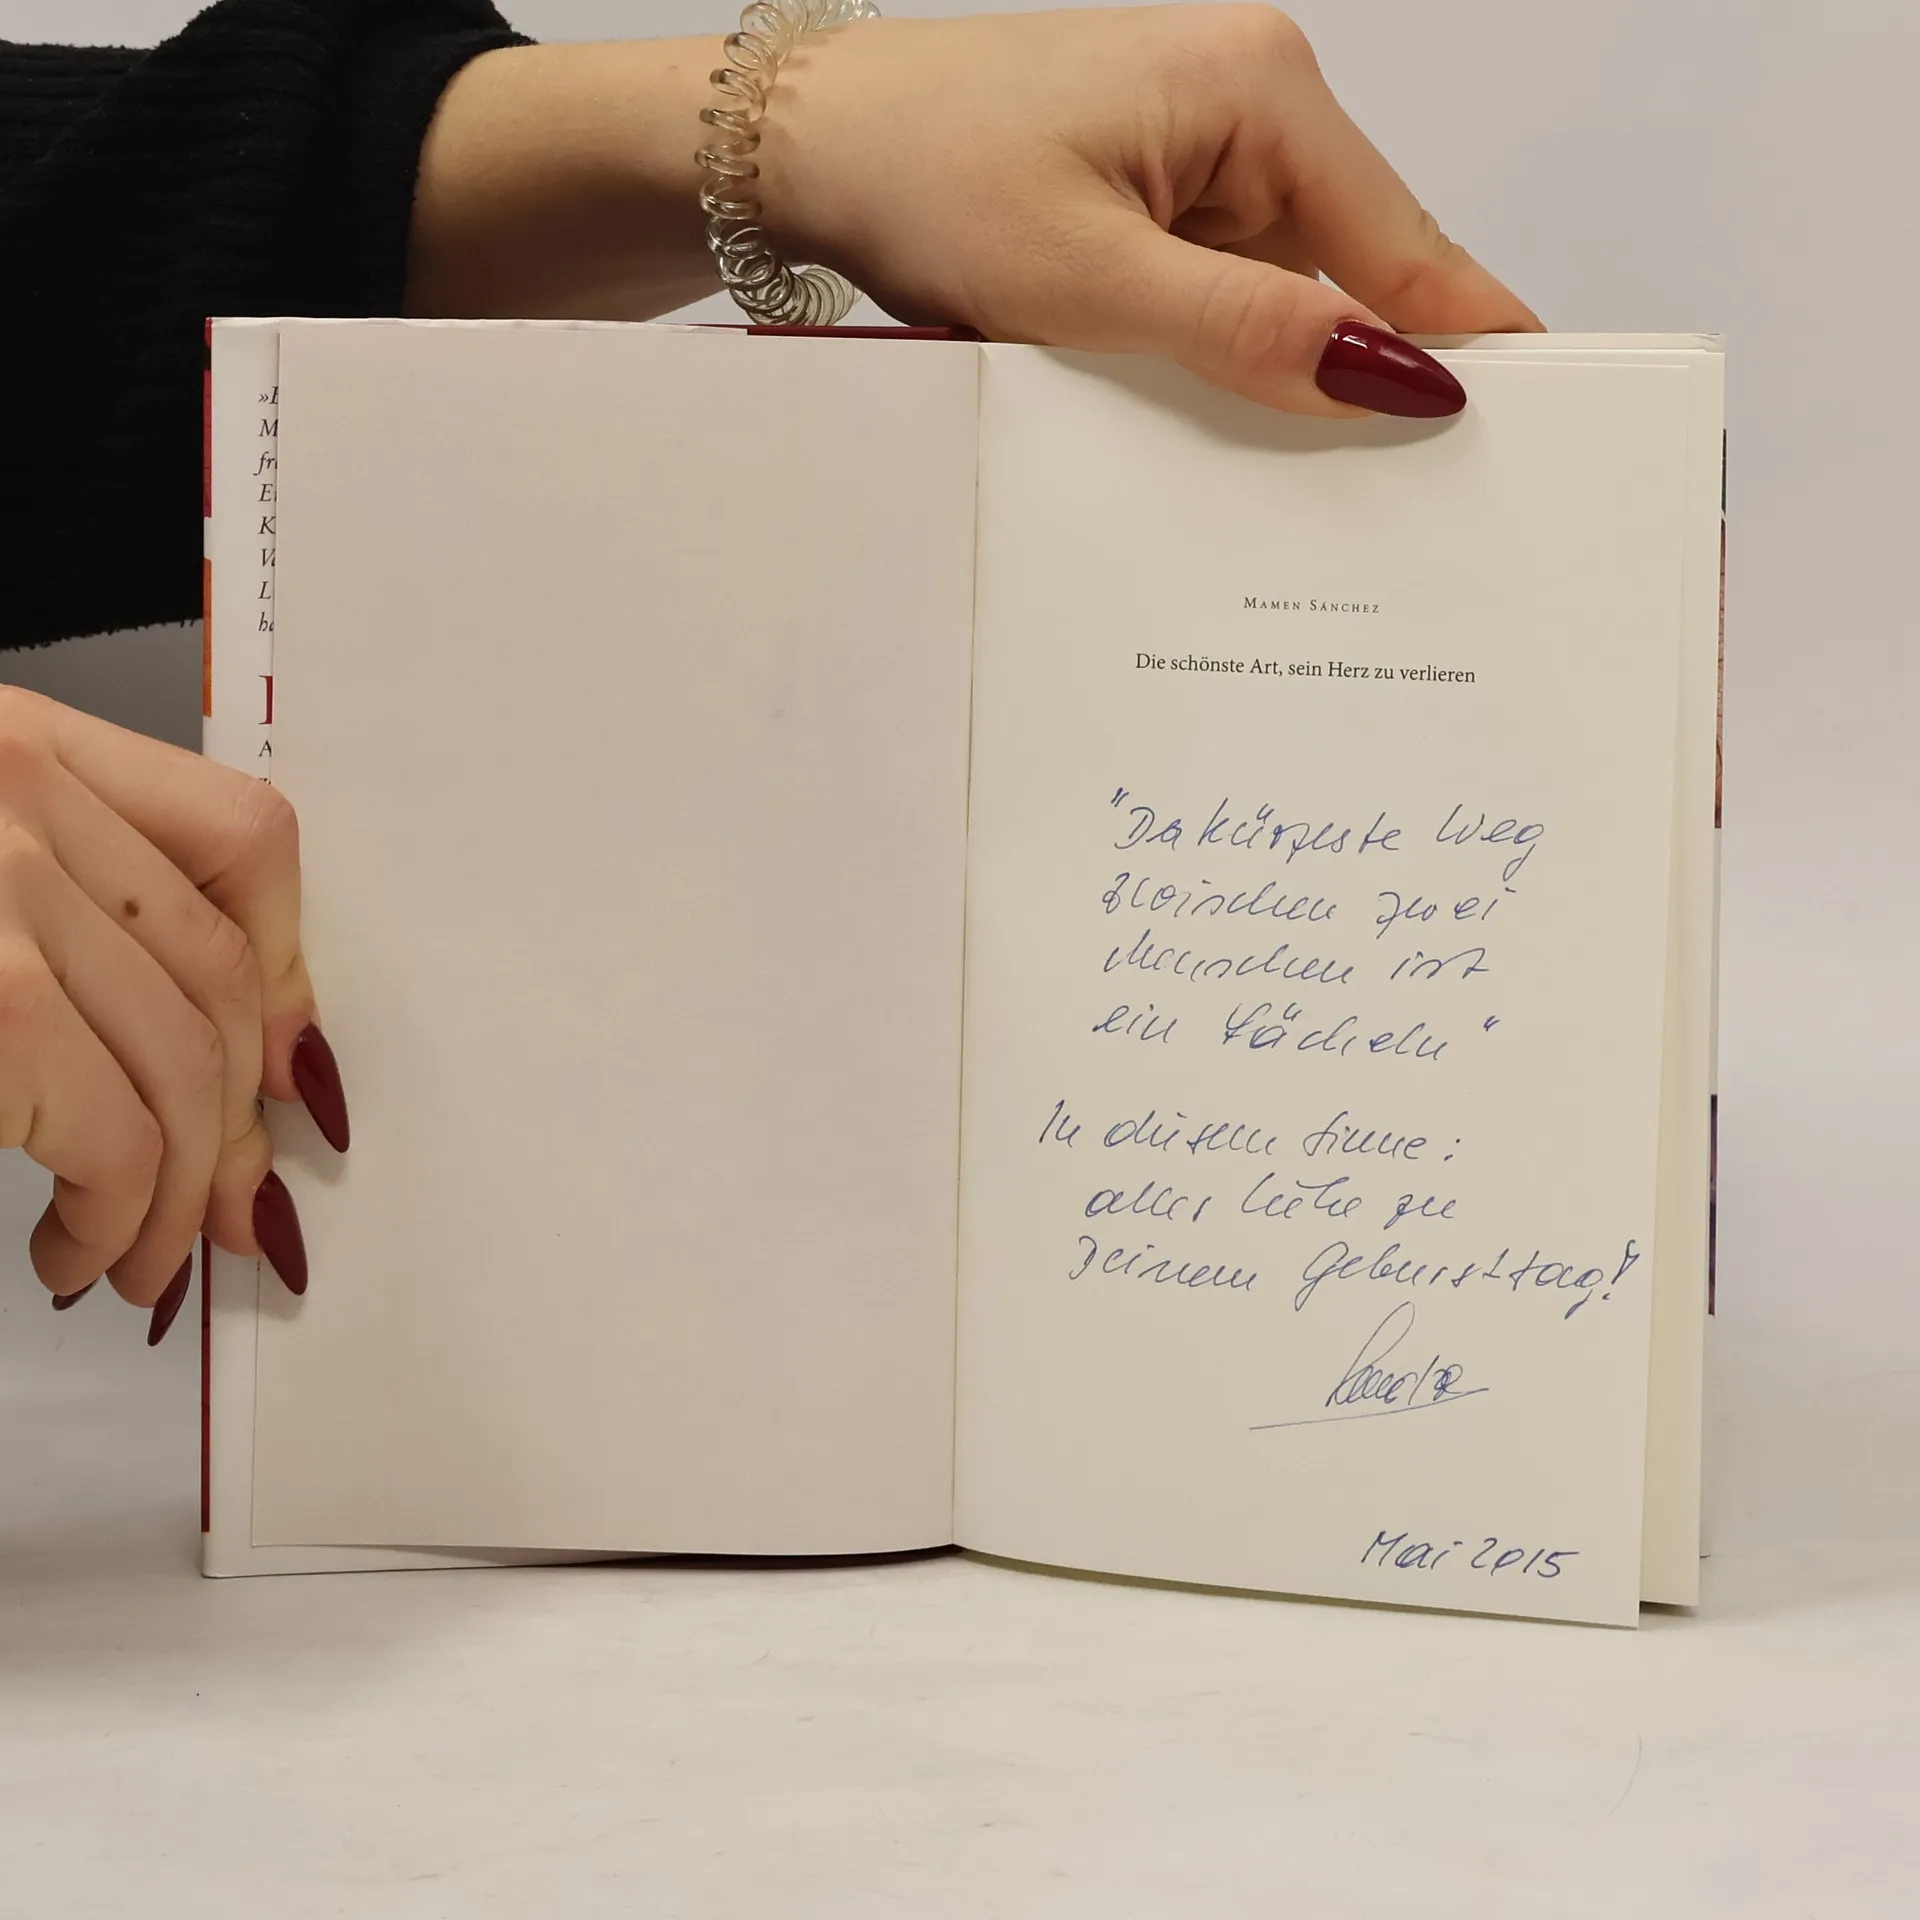 »E
M
fr
K
L
A
MAMEN SÁNCHEZ
Die schönste Art, sein Herz zu verlieren
"Der kürzeste Weg
zwischen zwei
Menschen ist
ein Lächeln"
In diesem Sinne:
alles Liebe zu
Deinem Geburtstag!
Mai 2015